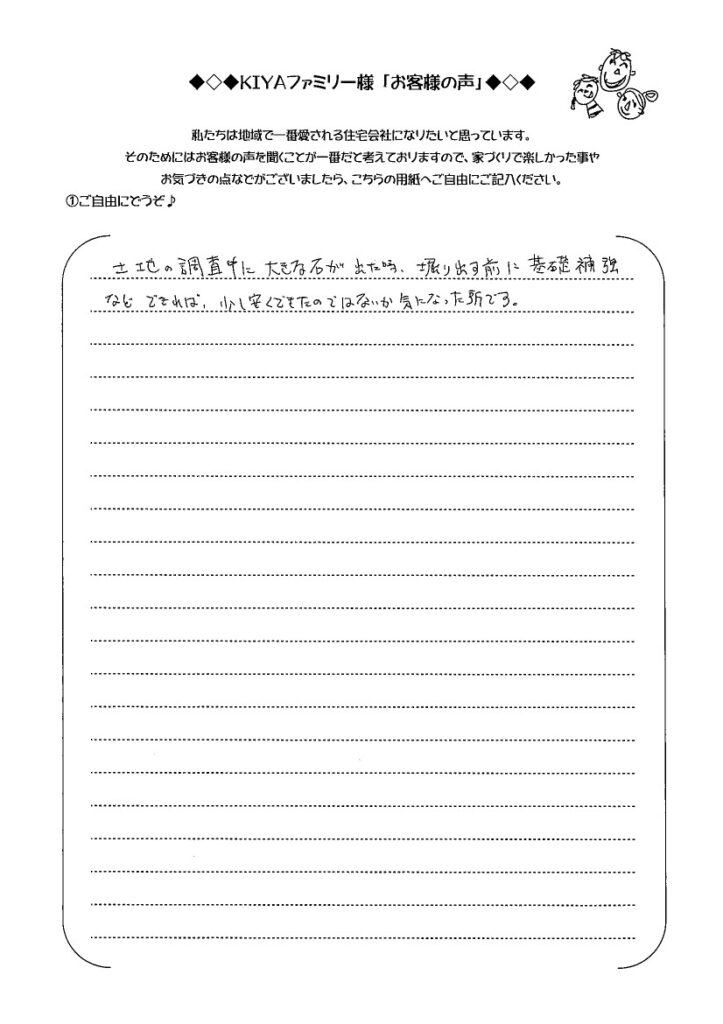 ◆◇◆KIYAファミリー様「お客様の声」◆◇◆
私たちは地域で一番愛される住宅会社になりたいと思っています。
そのためにはお客様の声を聞くことが一番だと考えておりますので、家づくりで楽しかった事や
お気づきの点などがございましたら、こちらの用紙へご自由にご記入ください。
①ご自由にどうぞ♪
土地の調査中に大きな石が出た時、堀り出す前に基礎補強
など できれば、少し安くできたのではないか気になった所です。